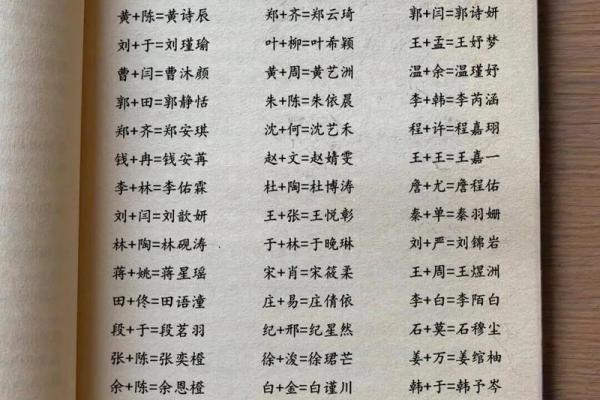 黄+陈=黄诗辰 郑+齐=郑云琦 郭+闫=郭诗妍
刘+于=刘瑾瑜 叶+柳=叶希颖 王+孟=王妤梦
曹+闫=曹沐颜 黄+周=黄艺洲 温+余=温瑾妤
郭+田=郭静恬 朱+陈=朱依晨 李+韩=李芮涵
郑+齐=郑安琪 沈+何=沈艺禾 程+许=程嘉珝
钱+冉=钱安苒 赵+文=赵婧雯 王+王=王嘉一
李+林=李佑霖 杜+陶=杜博涛 詹+尤=詹程佑
刘+闫=刘歆妍 王+张=王悦彰 秦+单=秦羽姗
林+陶=林砚涛 于+林=于晚琳 刘+严=刘锦岩
蒋+姚=蒋星瑶 宋+肖=宋筱柔 王+周=王煜洲
田+佟=田语潼 庄+易=庄倩依 李+白=李陌白
段+于=段茗羽 纪+邢=纪星然 石+莫=石穆尘
张+陈=张奕橙 徐+浚=徐珺芒 姜+万=姜绾柚
余+陈=余恩橙 白+金=白谨川 韩+于=韩予岑